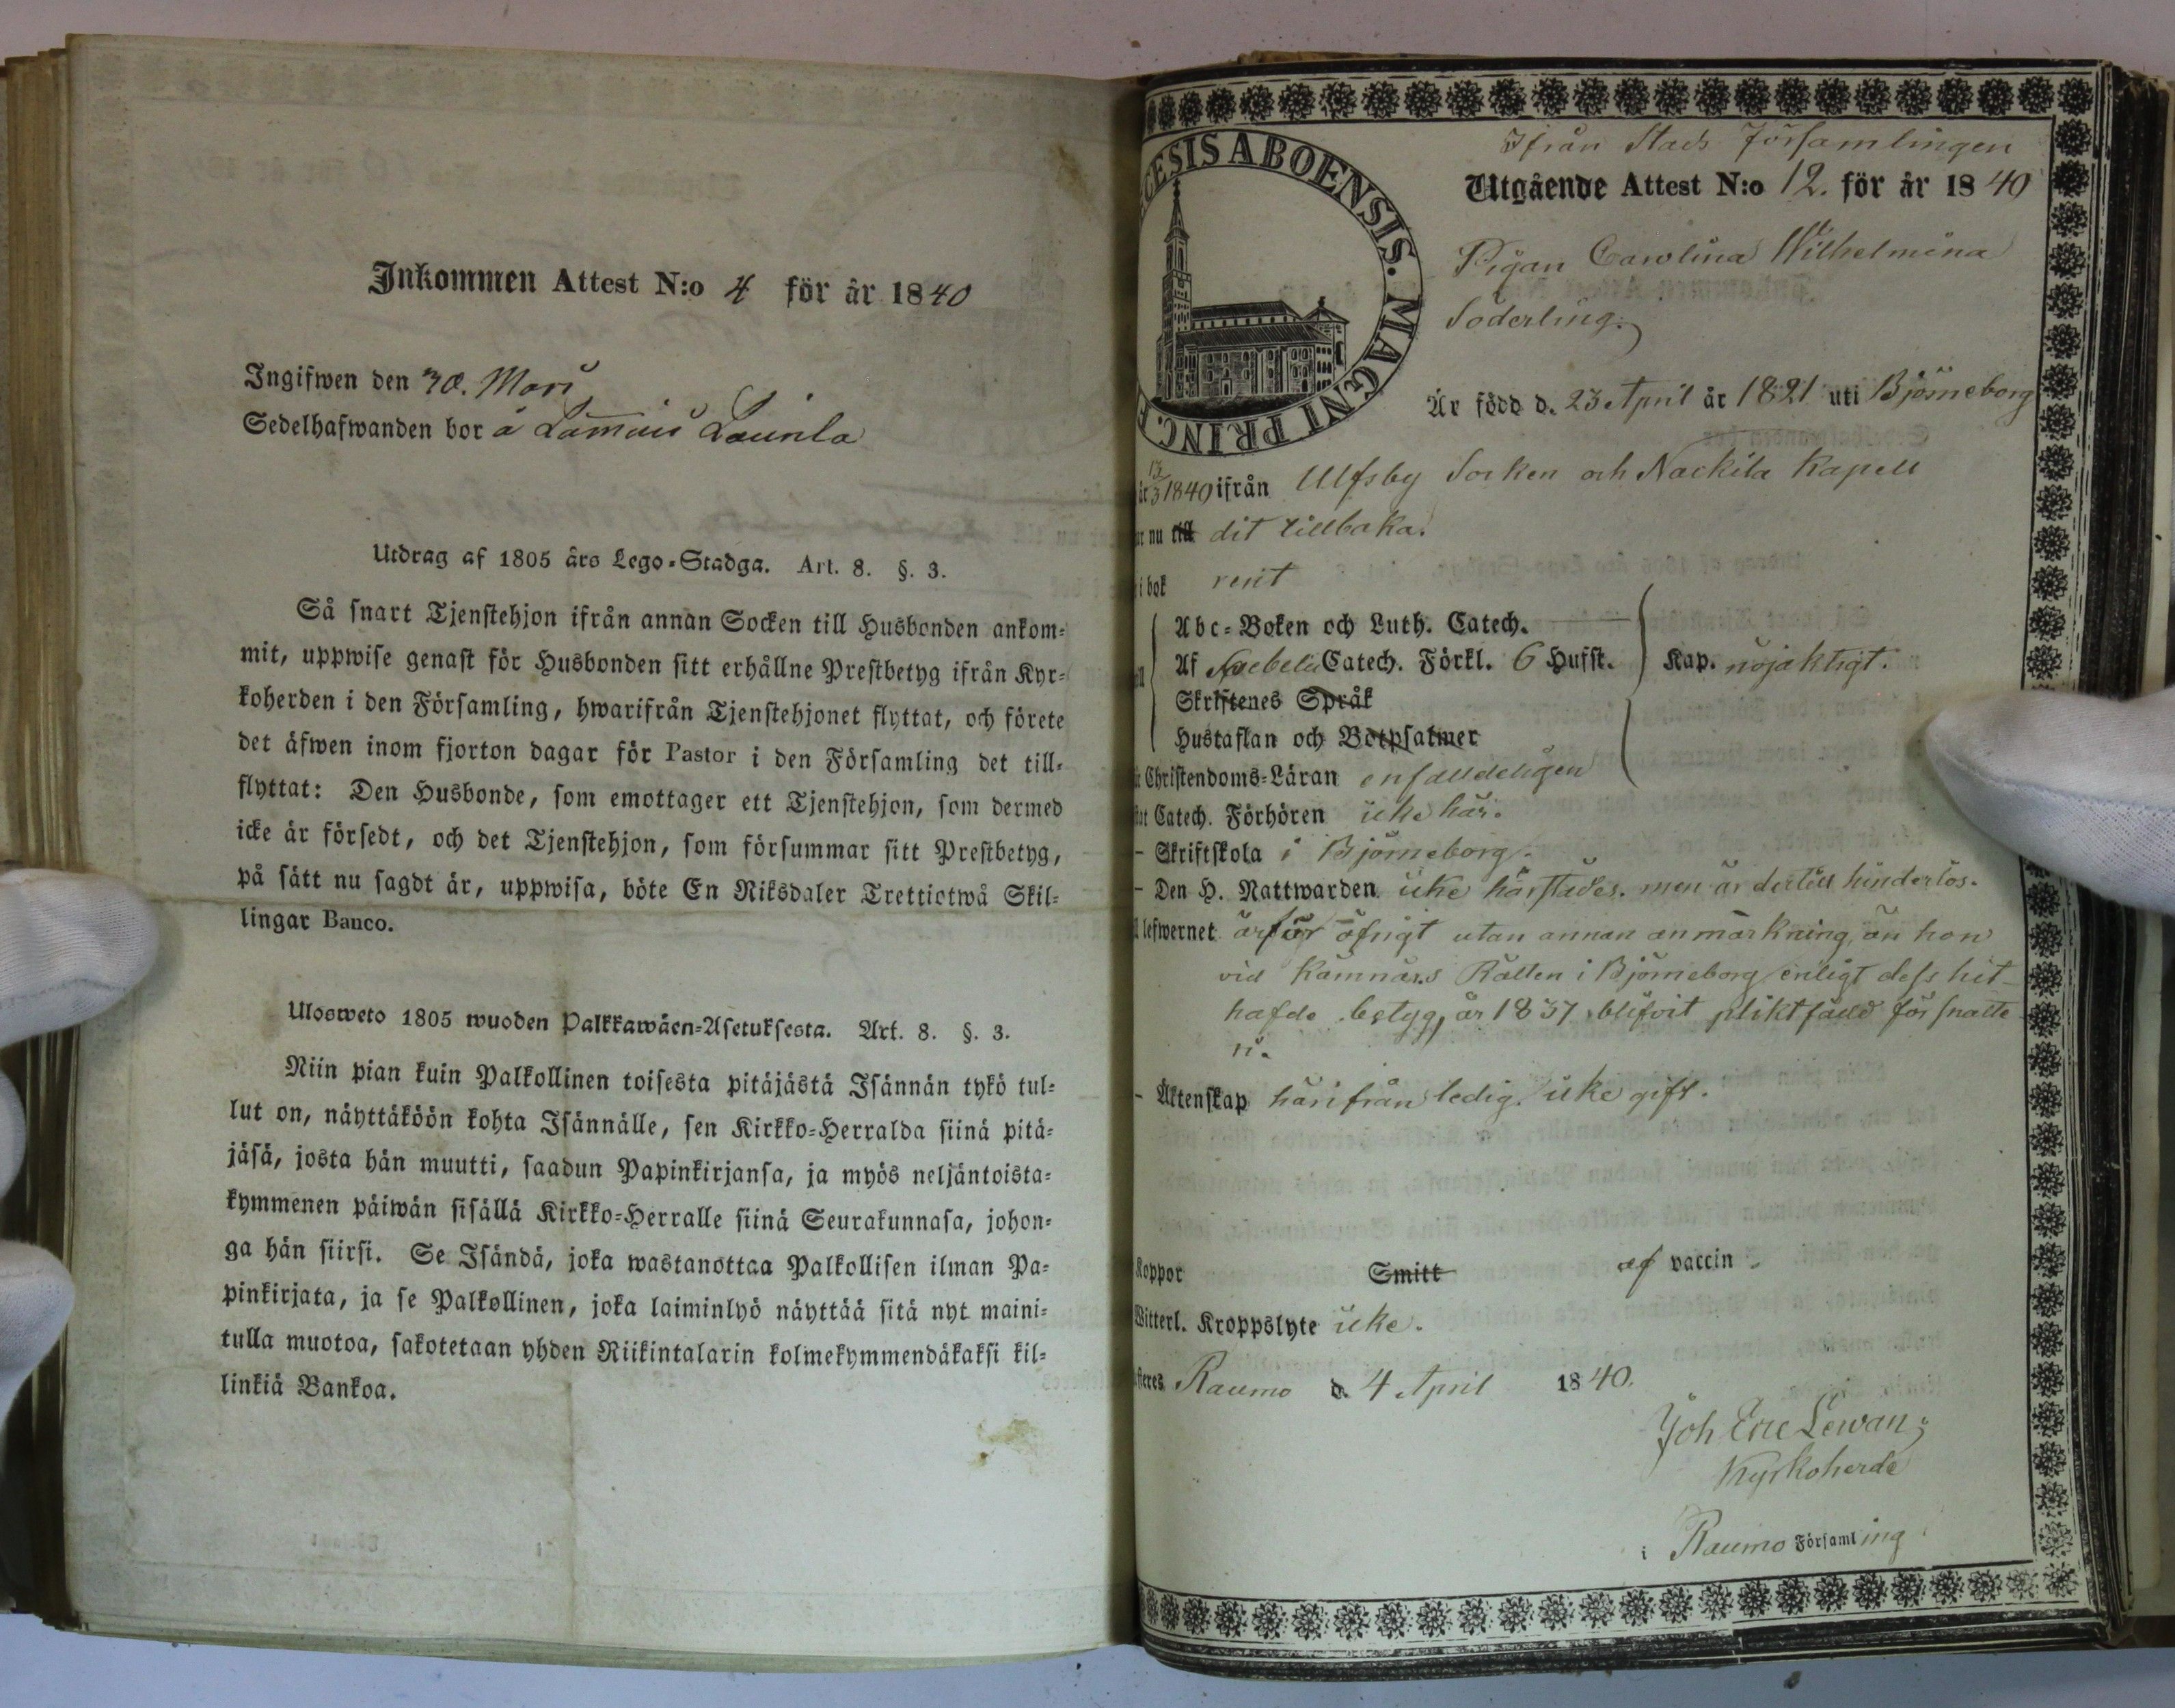 Inkommen Attest N:o 4 för år 1840
Ingifwen den 30. Mari
Sedelhafwanden bor å Lammais Launla
Utdrag af 1805 års Lego-Stadga. Art. 8. §. 3.
Så snart Tjenstehjon ifrån annan Socken till Husbonden ankom-
mit, uppwise genast för Husbonden sitt erhållne Prestbetyg ifrån Kyr-
koherden i den Församling, hwarifrån Tjenstehjonet flyttat, och förete
det äfwen inom fjorton dagar för Pastor i den Församling det till-
flyttat: Den Husbonde, som emottager ett Tjenstehjon, som dermed
icke är försedt, och det Tjenstehjon, som försummar sitt Prestbetyg,
på sätt nu sagdt är, uppwisa, böte En Riksdaler Trettiotwå Skil-
lingar Banco.
Ulosweto 1805 wuoden Palkkawäen-Asetuksesta. Art. 8. §. 3.
Niin pian kuin Palkollinen toisesta pitäjästä Isännän tykö tul-
lut on, näyttäköön kohta Isännälle, sen Kirkko-Herralda siinä pitä-
jäsä, josta hän muutti, saadun Papinkirjansa, ja myös neljäntoista-
kymmenen päiwän sisällä Kirkko-Herralle siinä Seurakunnasa, johon-
ga hän siirsi. Se Isändä, joka wastanottaa Palkollisen ilman Pa-
pinkirjata, ja se Palkollinen, joka laiminlyö näyttää sitä nyt maini-
tulla muotoa, sakotetaan yhden Riikintalarin kolmekymmendäkaksi kil-
linkiä Bankoa.
CESIS ABOENSIS. MAGNI PRINC. F
Ifrån Stads Församlingen
Utgående Attest N:o 12. för år 1840
Pigan Carolina Wilhelmina
Söderling.
Är född d. 23 April år 1821 uti Björneborg
år 13/3 1840 ifrån Ulfsby Socken och Nackila Kapell
ar nu till dit tillbaka.
i bok rent
Abc-Boken och Luth. Catech.
Af Svebelii Catech. Förkl. 6 Hufst. Kap. nöjaktigt.
Skriftenes Språk
Hustaflan och Botpsalmer
Christendoms-Läran enfalldeligen
Catech. Förhören icke här.
- Skriftskola i Björneborg.
- Den H. Nattwarden icke härstädes. men är dertill hinderlös.
lefwernet är för öfrigt utan annan anmärkning, än hon
vid Kämnärs Rätten i Björneborg enligt dess hit-
hafde betyg, år 1837 blifvit pliktfälld för snatte
ri.
- Äktenskap härifrån ledig. icke gift.
Koppor Smitt af vaccin
Witterl. Kroppslyte icke.
steres Raumo d. 4 April 1840.
Joh Eric Lewan;
Kyrkoherde
i Raumo Församling